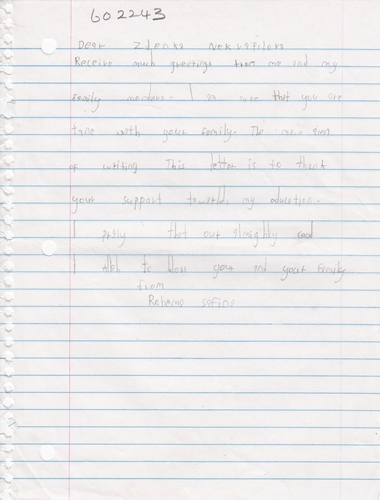 602243
Dear Zdenka Nekvapilova
Receive much greetings from me and my
family members. I am sure that you are
fane with your family. The main aien
of writing This letter is to thank
your support towards my education.
I pray that our almaghty God
I to bless your and your family
from
Rehema Safina